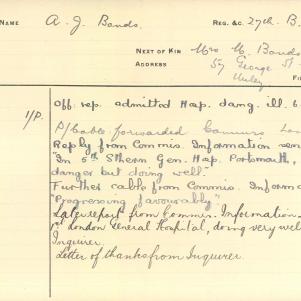 NAME A. J. Bonds. REG. &C. 27th B.
NEXT OF KIN Mrs M. Bonds
ADDRESS 57 George St
Unley
1/P. Off. rep. admitted Hosp. dang. ill. 6.
P/Cable forwarded Lon
Reply from Commis. Information
"In 5th Sthern Gen. Hosp. Portsmouth,
danger but doing well."
Further cable from Commis. Informa
"Progressing favourably"
Later report from Commis. Information
London General Hospital, doing very wel
Inquirer.
Letter of thanks from Inquirer.